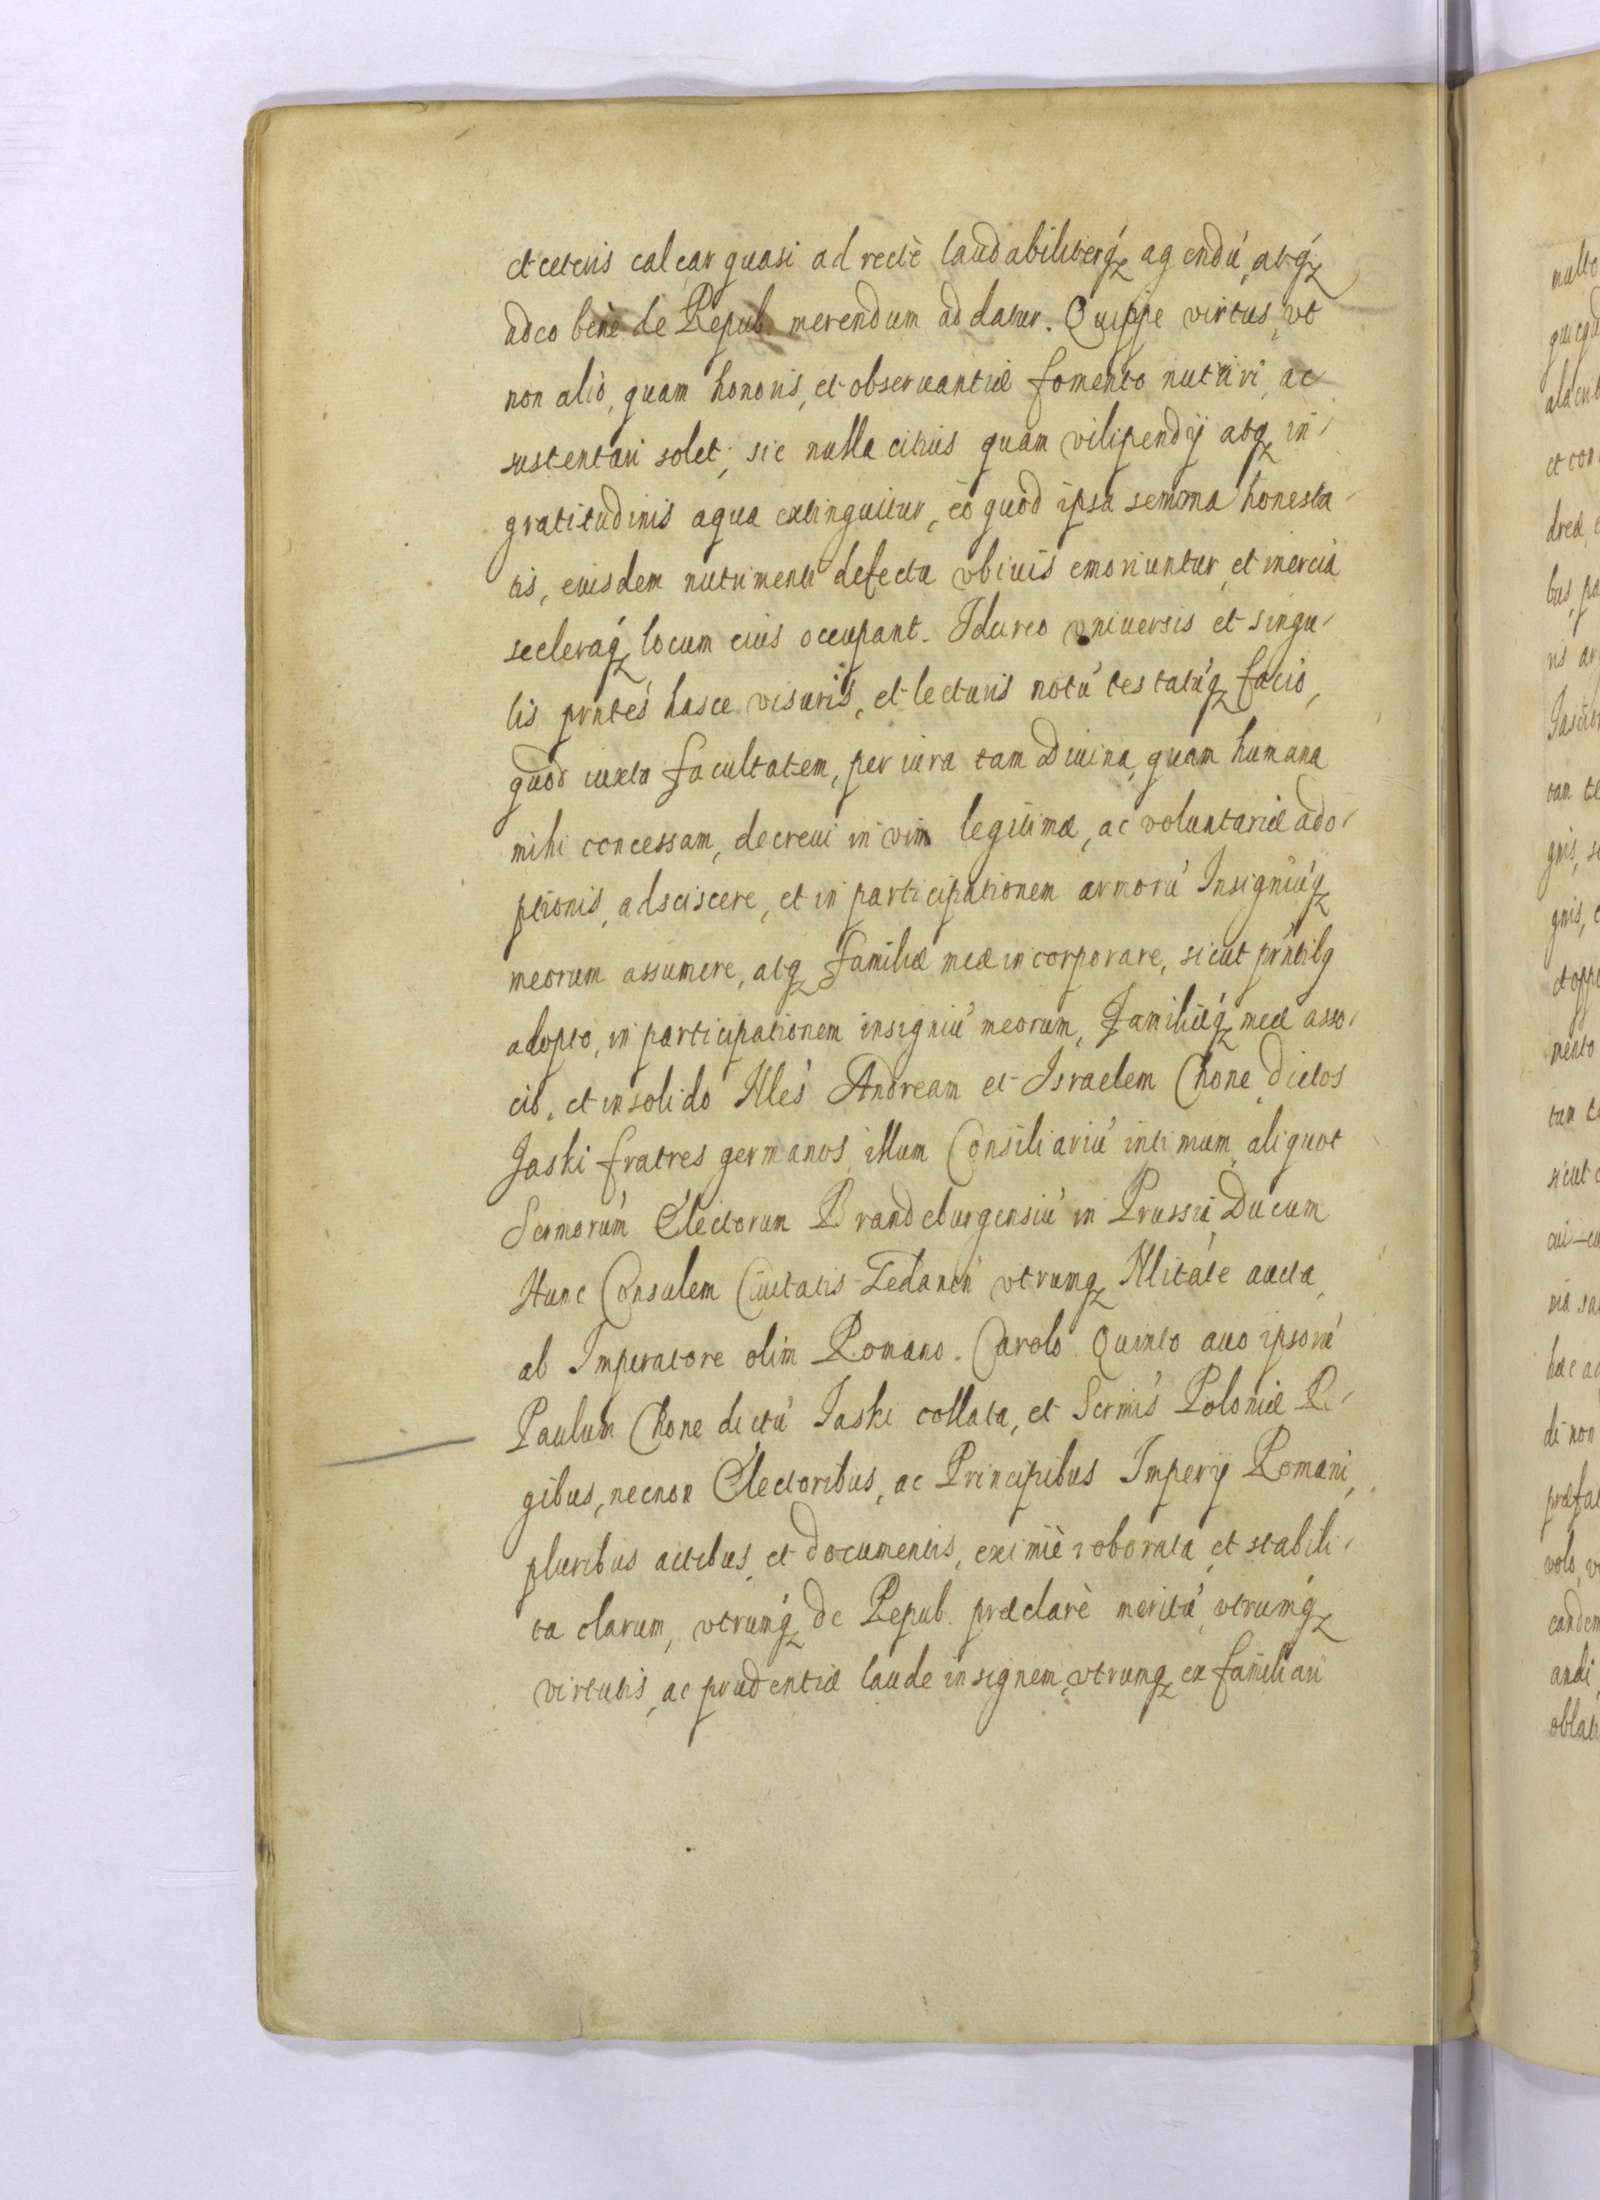 et ceteris calcar quasi ad rectè laudabiliterq́ꝫ agendú, atq́ꝫ
adeo benè de Repub. merendum addatur. Quippe virtus, vt
non aliò, quam honoris, et obseruantiæ fomento nutriri, ac
sustentari solet; sic nulla citius quam vilipendij atqꝫ in-
gratitudinis aqua extinguitur, eò quòd ipsa semina honesta-
tis, eiusdem nutrimenti defectu vbiuis emoriuntur, et inertia
sceleraq́ꝫ locum eius occupant. Idcirco vniuersis et singu-
lis pntes hasce visuris, et lecturis notú testatúqꝫ facio,
quòd iuxta facultatem, per iura tam Diuina, quam humana
mihi concessam, decreui in vim legitimæ, ac voluntariæ ado-
ptionis, adsciscere, et in participationem armorú Insigniúqꝫ
meorum assumere, atqꝫ familiæ meæ incorporare, sicut pntibq
adopto, in participationem insigniú meorum, Familiæq́ꝫ meæ asso-
cio, et insolido Illes Andream et Israelem Chone, dictos
Jaski fratres germanos, illum Consiliariú intimum, aliquot
Sermorúm Electorum Brandeburgensiú in Prussia Ducum
Hunc Consulem Ciuitatis Gedanen utrumqꝫ Illitate aucta,
ab Imperatore olim Romano. Carolo Quinto auo ipsorú
Paulum Chone dictú Jaski collata, et Sermis Poloniæ Re-
gibus, necnon Electoribus, ac Principibus Imperij Romani,
pluribus actibus, et documentis, eximiè roborata, et stabili-
ta clarum, vtrumq́ꝫ de Repub. præclarè meritú, vtrumq́ꝫ
virtutis, ac prudentiæ laude insignem, vtrumqꝫ ex familiari